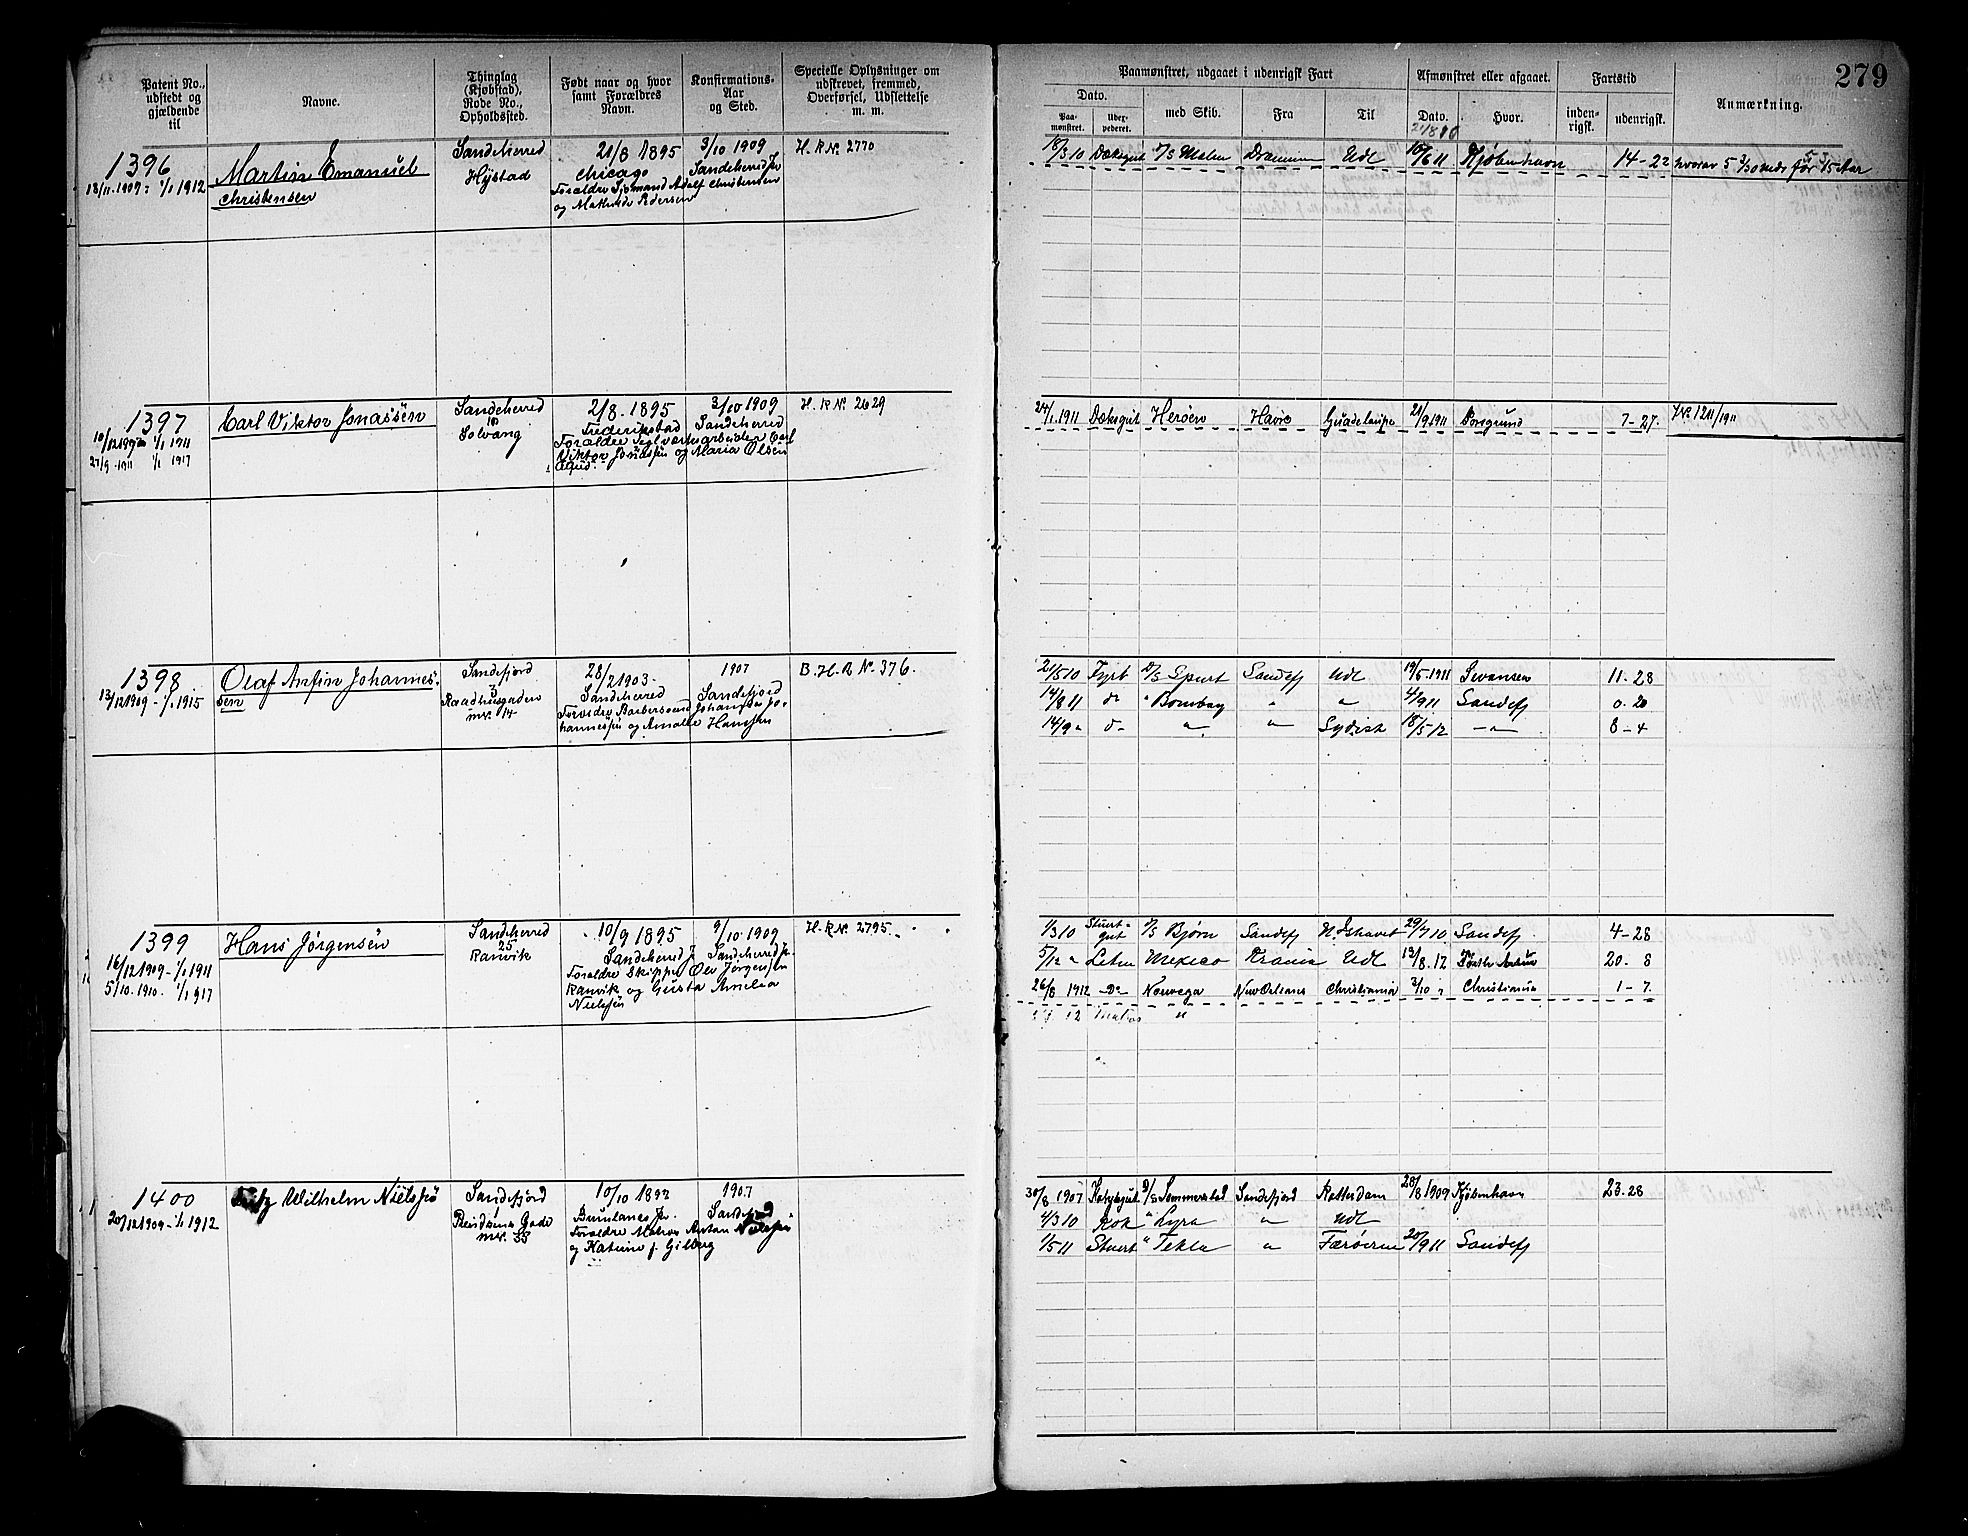 279
Patent No., udstedt og gjældende til
Navne.
Thinglag (Kjøbstad), Rode No., Opholdssted.
Født naar og hvor samt Forældres Navn.
Konfirmations- Aar og Sted.
Specielle Oplysninger om udskrevet, fremmed, Overførsel, Udslettelse m. m.
Paamønstret, udgaaet i udenrigsk Fart
Afmønstret eller afgaaet.
Fartstid
Anmærkning.
Dato.
Paa- mønstret.
med Skib.
Fra
Til
Dato.
Hvor.
inden- rigsk.
udenrigsk.
1396
18/11 1909 1/1 1912
Martin Emanuel
Christensen
Sandeherred
Hystad
21/8 1895
Chicago
Forældre Sjømand Adolf Christensen
og Mathilde Pedersen
3/10 1909
Sandeherred
H. R Nr. 2770
18/3 10 Dæksgut Drammen Udl 10/6 11 Kjøbenhavn 14-22
hvorav 5 3/30 Mdr før 15 Aar
1397
10/12 1909 1/1 1911
27/9 1911 1/1 1917
Carl Viktor Jonassen
Sandeherred
Solvang
2/8 1895
Frederikstad
Forældre Teglværksarbeider Carl
Viktor Jonassen og Maria Olsen
3/10 1909
Sandeherred
H. R Nr. 2629
24/1 1911 Dæksgut Herøen Havre Guadeloupe 21/9 1911 Porsgrund 7-27.
J.No. 1211/1911
1398
13/12 1909 - 1/1 1915
Olaf Anfin Johannes-
sen
Sandefjord
3
Raadhusgaden
nr. 14
28/2 1903
Sandeherred
hannessen og Amalie Hanssen
1907
Sandefjord
B. H. R Nr. 376.
21/5 10 Fyrb D/S Spurt Sandefj Udl 19/5 1911 Svansea 11-28
14/8 11 do " Bombay " " 4/9 11 Sandefj 0-20
14/9 " d- " " Sydish 18/5 12 -"- 8-4
1399
16/12 1909 - 1/1 1911
5/10 1910 - 1/1 1917
Hans Jørgensen
Sandeherred
25
Ranvik
10/9 1895
Sandeherred
Forældre Skipper Olv Jørgensen
Ranvik og Gusta Amelia
Nielsen
9/10 1909
Sandeherred
H. R Nr. 2795
1/3 10 Stuert-
gut D/S Bjørn Sandefj N. Ishavet 29/7 10 Sandefj 4-28
5/12 " Letm Mexico Krania Udl 13/8 12 20-8
26/8 1912 -Do- Norvega New Orleans Christiania 2/10 " Christiania 1-7
12 Matros "
1400
20/12 1909 - 1/1 1912
Fritz Wilhelm Nielsen
Sandefjord
1
nr. 33
10/10 1892
Brunlanes
Forældre Matros Anton Nielsen
og Katrine f. Gilberg
1907
Sandefjord
30/8 1907 D/S Sommerstad Sandefjord Rotterdam 28/8 1909 Kjøbenhavn 23-28
4/3 10 Kok " Lyra " Udl
1/5 11 Stuert " Tekla " Færøerne 20/9 11 Sandefj